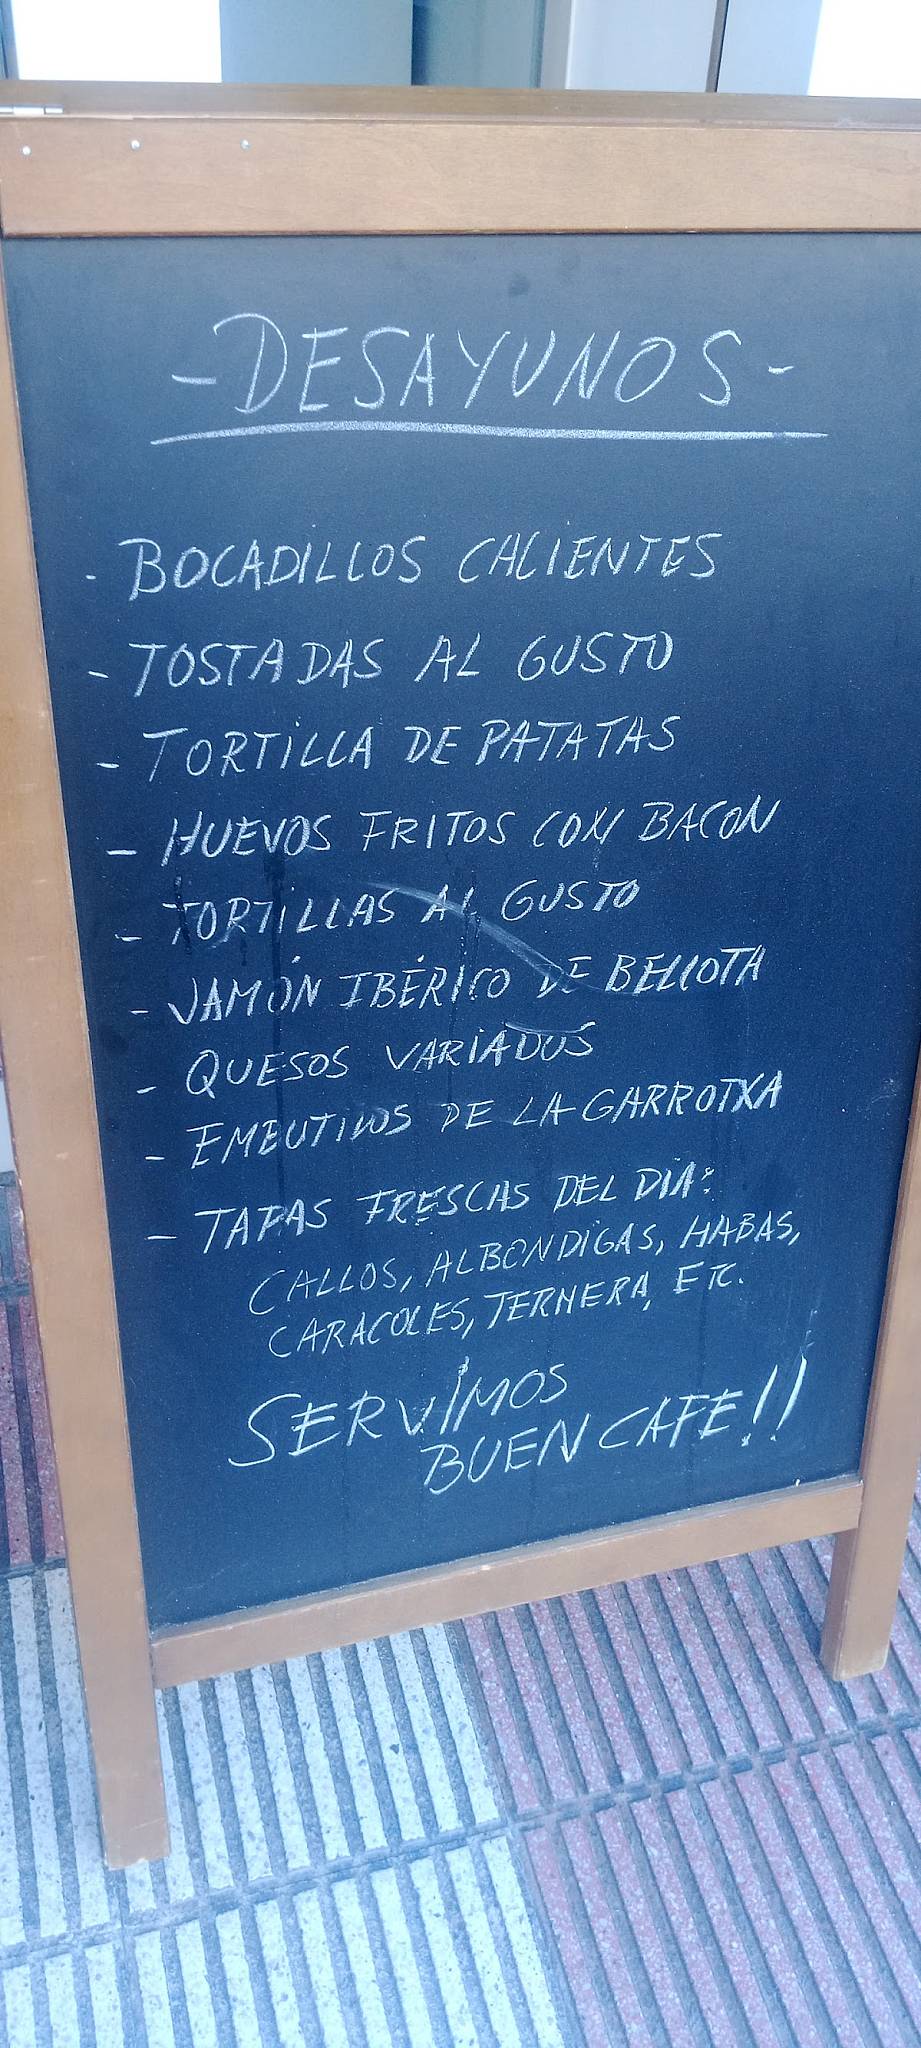 - DESAYUNOS -
- BOCADILLOS CALIENTES
- TOSTADAS AL GUSTO
- TORTILLA DE PATATAS
- HUEVOS FRITOS CON BACON
- TORTILLAS AL GUSTO
- JAMÓN IBÉRICO DE BELLOTA
- QUESOS VARIADOS
- EMBUTIDOS DE LA GARROTXA
- TAPAS FRESCAS DEL DIA:
CALLOS, ALBONDIGAS, HABAS,
CARACOLES, TERNERA, ETC.
SERVIMOS
BUEN CAFE!!